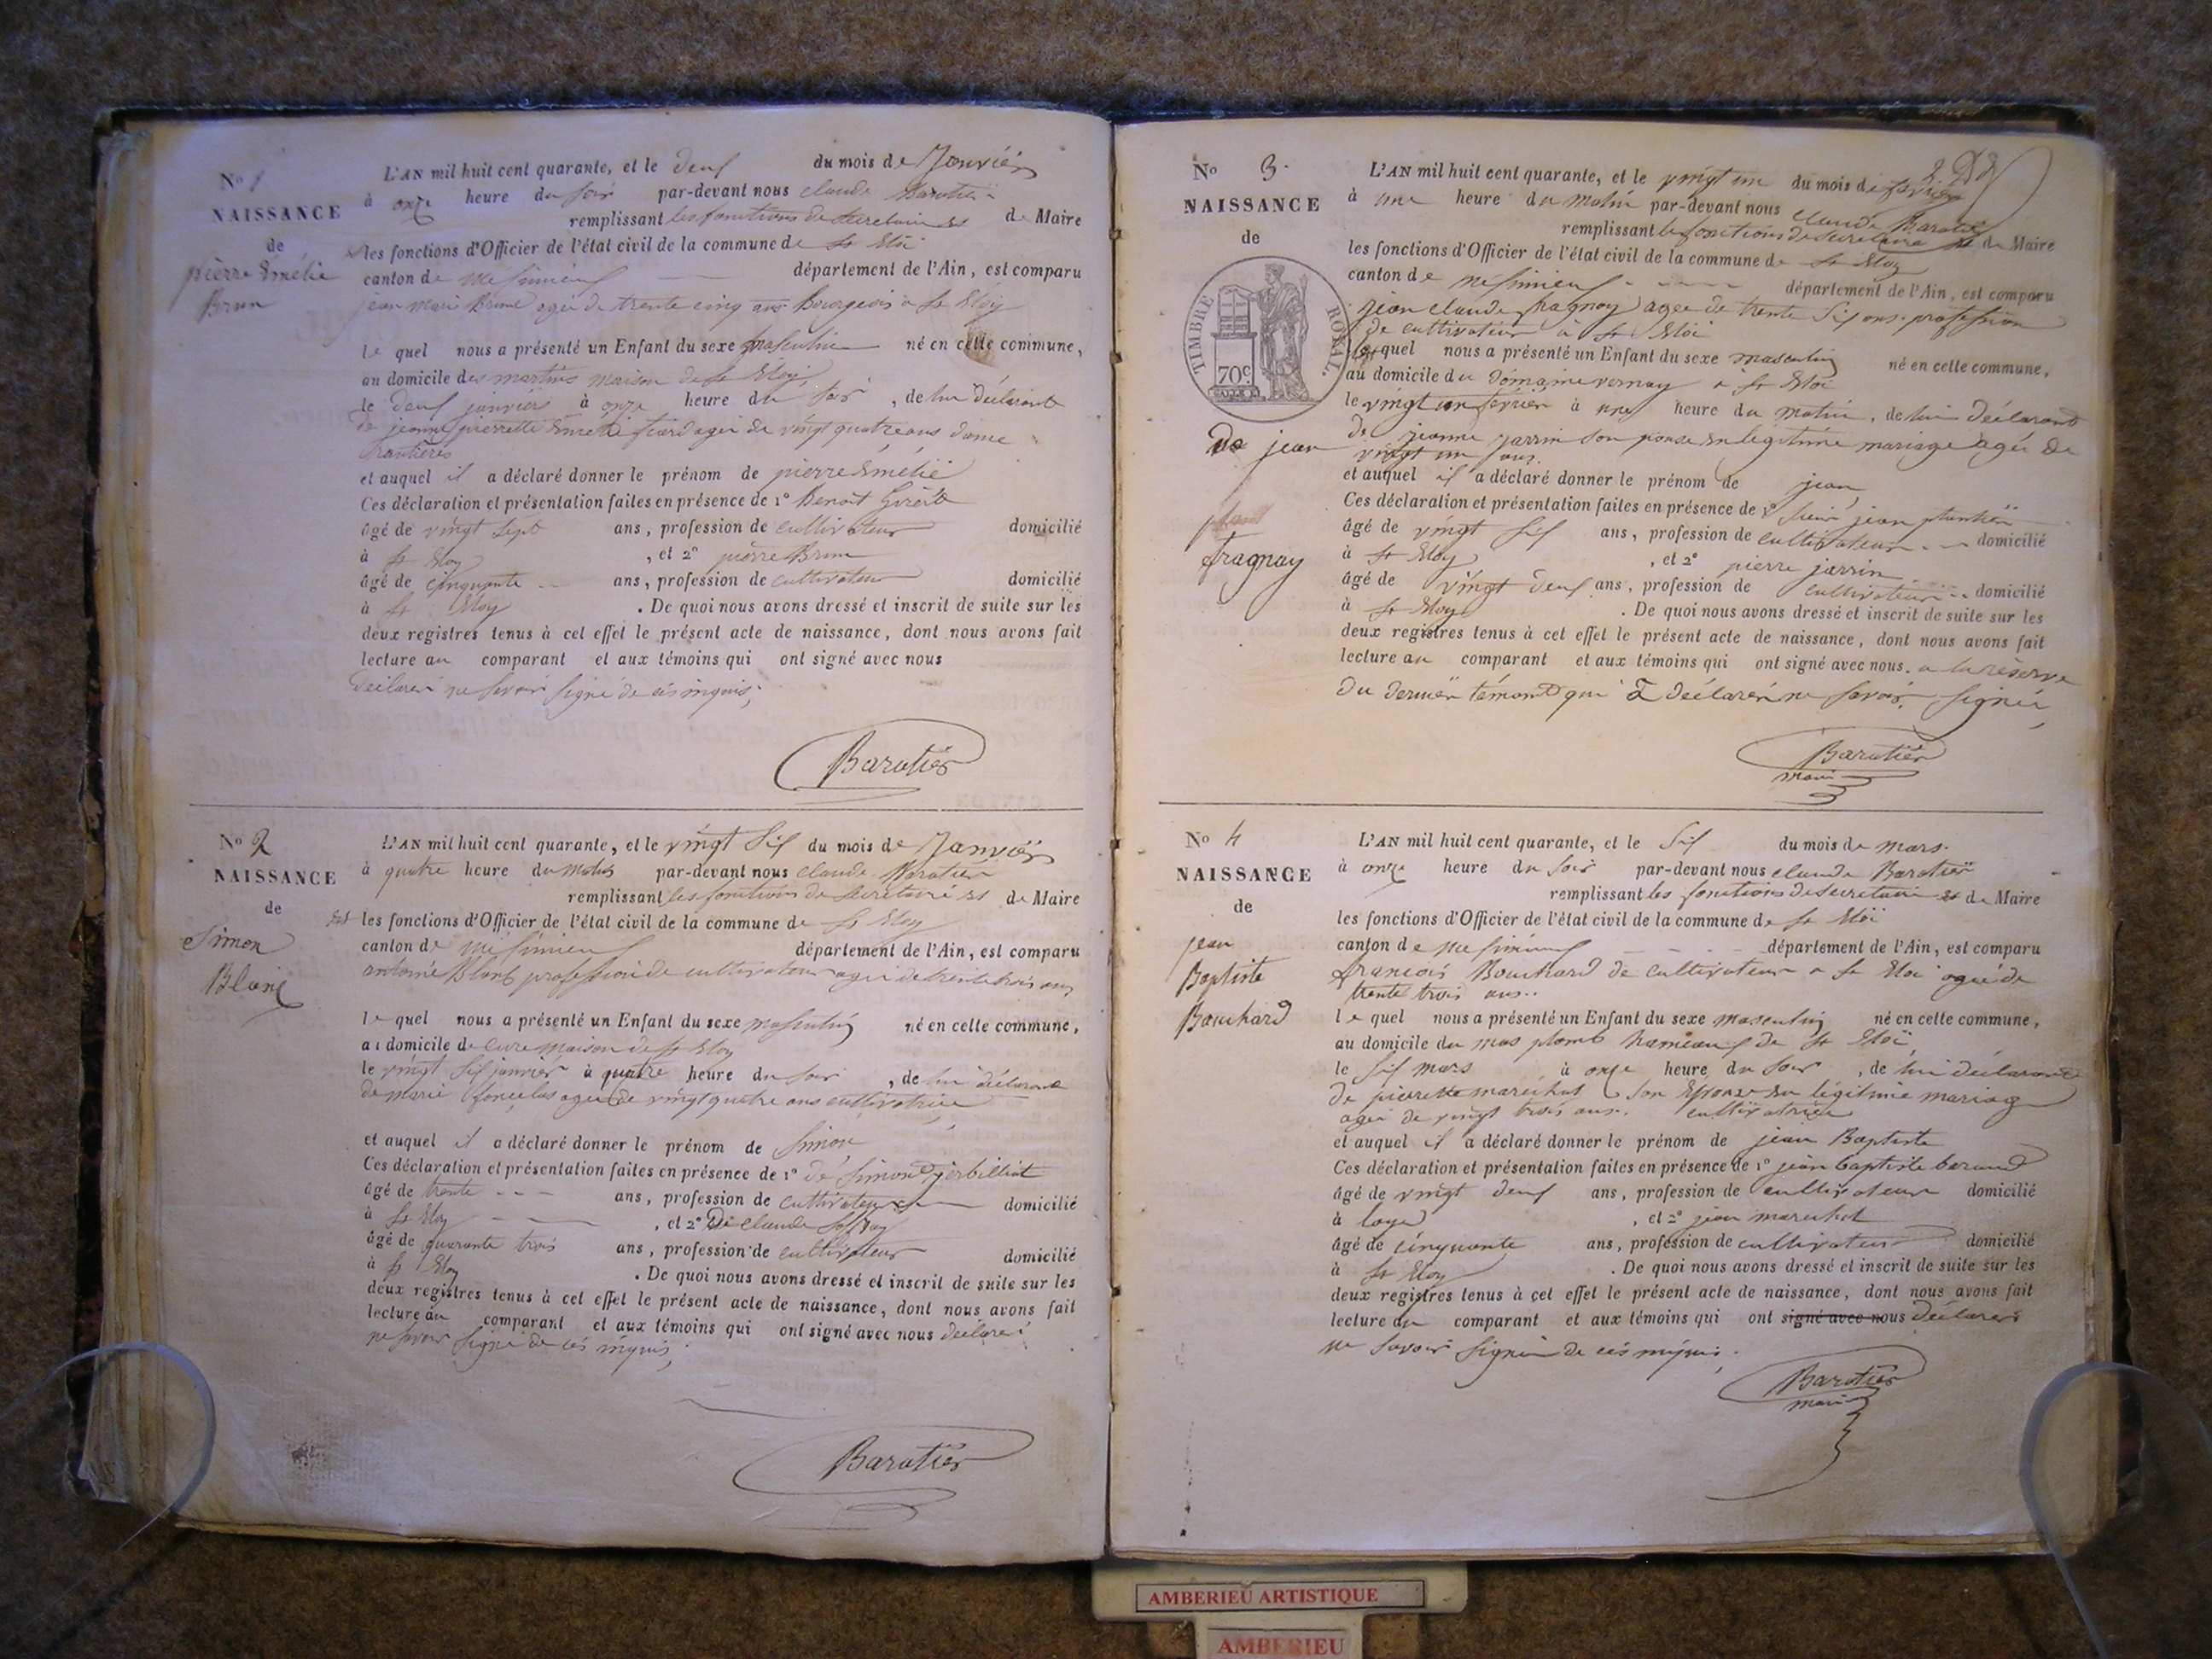 No 1
NAISSANCE
de
pierre Emélie
Brun
L'AN mil huit cent quarante, et le deux du mois de Janvier
à onze heure du soir par-devant nous claude Baratier
remplissant les fonctions de secretaire de Maire
les fonctions d'Officier de l'état civil de la commune de St Eloi
canton de Meximieux département de l'Ain, est comparu
jean marie Brune agée de trente cinq ans Bourgeois a St Eloy
le quel nous a présenté un Enfant du sexe masculin né en cette commune,
au domicile des martins maison de St Eloy
le deux janvier à onze heure du soir, de lui déclarant
de jeanne pierrette Emélie agée de vingt quatre ans dame
et auquel il a déclaré donner le prénom de pierre Emélie
Ces déclaration et présentation faites en présence de 1° Benoit
âgé de vingt sept ans, profession de cultivateur domicilié
à St Eloy, et 2° pierre Brun
âgé de cinquante ans, profession de cultivateur domicilié
à St Eloy. De quoi nous avons dressé et inscrit de suite sur les
deux registres tenus à cet effet le présent acte de naissance, dont nous avons fait
lecture au comparant et aux témoins qui ont signé avec nous
déclaré ne savoir signé de ces
Baratier
No 2
NAISSANCE
de
Simon
Blanc
L'AN mil huit cent quarante, et le vingt six du mois de Janvier
à quatre heure du matin par-devant nous claude Baratier
remplissant les fonctions de secretaire de Maire
les fonctions d'Officier de l'état civil de la commune de St Eloy
canton de Meximieux département de l'Ain, est comparu
antoine Blanc profession de cultivateur agée de trente trois ans
le quel nous a présenté un Enfant du sexe masculin né en cette commune,
au domicile de cure maison de St Eloy
le vingt six janvier à quatre heure du soir, de lui déclarant
de marie agée de vingt quatre ans cultivatrice
et auquel il a déclaré donner le prénom de Simon
Ces déclaration et présentation faites en présence de 1° de Simon jerbilliat
âgé de trente ans, profession de cultivateur domicilié
à St Eloy, et 2° De claude
âgé de quarante trois ans, profession de cultivateur domicilié
à St Eloy. De quoi nous avons dressé et inscrit de suite sur les
deux registres tenus à cet effet le présent acte de naissance, dont nous avons fait
lecture au comparant et aux témoins qui ont signé avec nous déclaré
ne savoir signé de ces
Baratier
No 3
NAISSANCE
de
TIMBRE ROYAL.
70c
De jean
fragnay
L'AN mil huit cent quarante, et le vingt un du mois de fevrier
à une heure du matin par-devant nous claude Baratier
remplissant les fonctions de secretaire de Maire
les fonctions d'Officier de l'état civil de la commune de St Eloy
canton de Meximieux département de l'Ain, est comparu
jean claude fragnay agée de trente six ans profession
de cultivateur a St Eloi
le quel nous a présenté un Enfant du sexe masculin né en cette commune,
au domicile du domaine vernay a St Eloi
le vingt un fevrier à une heure du matin, de lui déclarant
de jeanne jarrin son pouse en legitime mariage agée de
vingt un ans.
et auquel il a déclaré donner le prénom de jean
Ces déclaration et présentation faites en présence de 1° jean plantier
âgé de vingt six ans, profession de cultivateur domicilié
à St Eloy, et 2° pierre jarrin
âgé de vingt deux ans, profession de cultivateur domicilié
à St Eloy. De quoi nous avons dressé et inscrit de suite sur les
deux registres tenus à cet effet le présent acte de naissance, dont nous avons fait
lecture au comparant et aux témoins qui ont signé avec nous. a la réserve
du dernier témoint qui a déclaré ne savoir signé
Baratier
No 4
NAISSANCE
de
jean
Baptiste
Bouchard
L'AN mil huit cent quarante, et le six du mois de mars.
à onze heure du soir par-devant nous claude Baratier
remplissant les fonctions de secretaire de Maire
les fonctions d'Officier de l'état civil de la commune de St Eloi
canton de Meximieux département de l'Ain, est comparu
francois Bouchard de cultivateur a St Eloi agée de
trente trois ans..
le quel nous a présenté un Enfant du sexe masculin né en cette commune,
au domicile du mas plomb hameaux de St Eloi
le six mars à onze heure du soir, de lui déclarant
de pierrette maréchal son Epouse en légitime mariage
agée de vingt trois ans. cultivatrice
et auquel il a déclaré donner le prénom de jean Baptiste
Ces déclaration et présentation faites en présence de 1° jean baptiste
âgé de vingt deux ans, profession de cultivateur domicilié
à loye, et 2° jean marechal
âgé de cinquante ans, profession de cultivateur domicilié
à St Eloy. De quoi nous avons dressé et inscrit de suite sur les
deux registres tenus à cet effet le présent acte de naissance, dont nous avons fait
lecture au comparant et aux témoins qui ont signé avec nous déclaré
ne savoir signé de ces
Baratier
AMBERIEU ARTISTIQUE
AMBERIEU